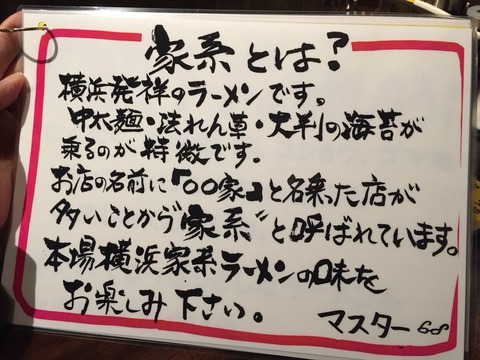 家系とは?
横浜発祥のラーメンです。
中太麺・法れん草・大判の海苔が
乗るのが特徴です。
お店の名前に「〇〇家」と名乗った店が
多いことから“家系”と呼ばれています。
本場横浜家系ラーメンの味を
お楽しみ下さい。
マスター